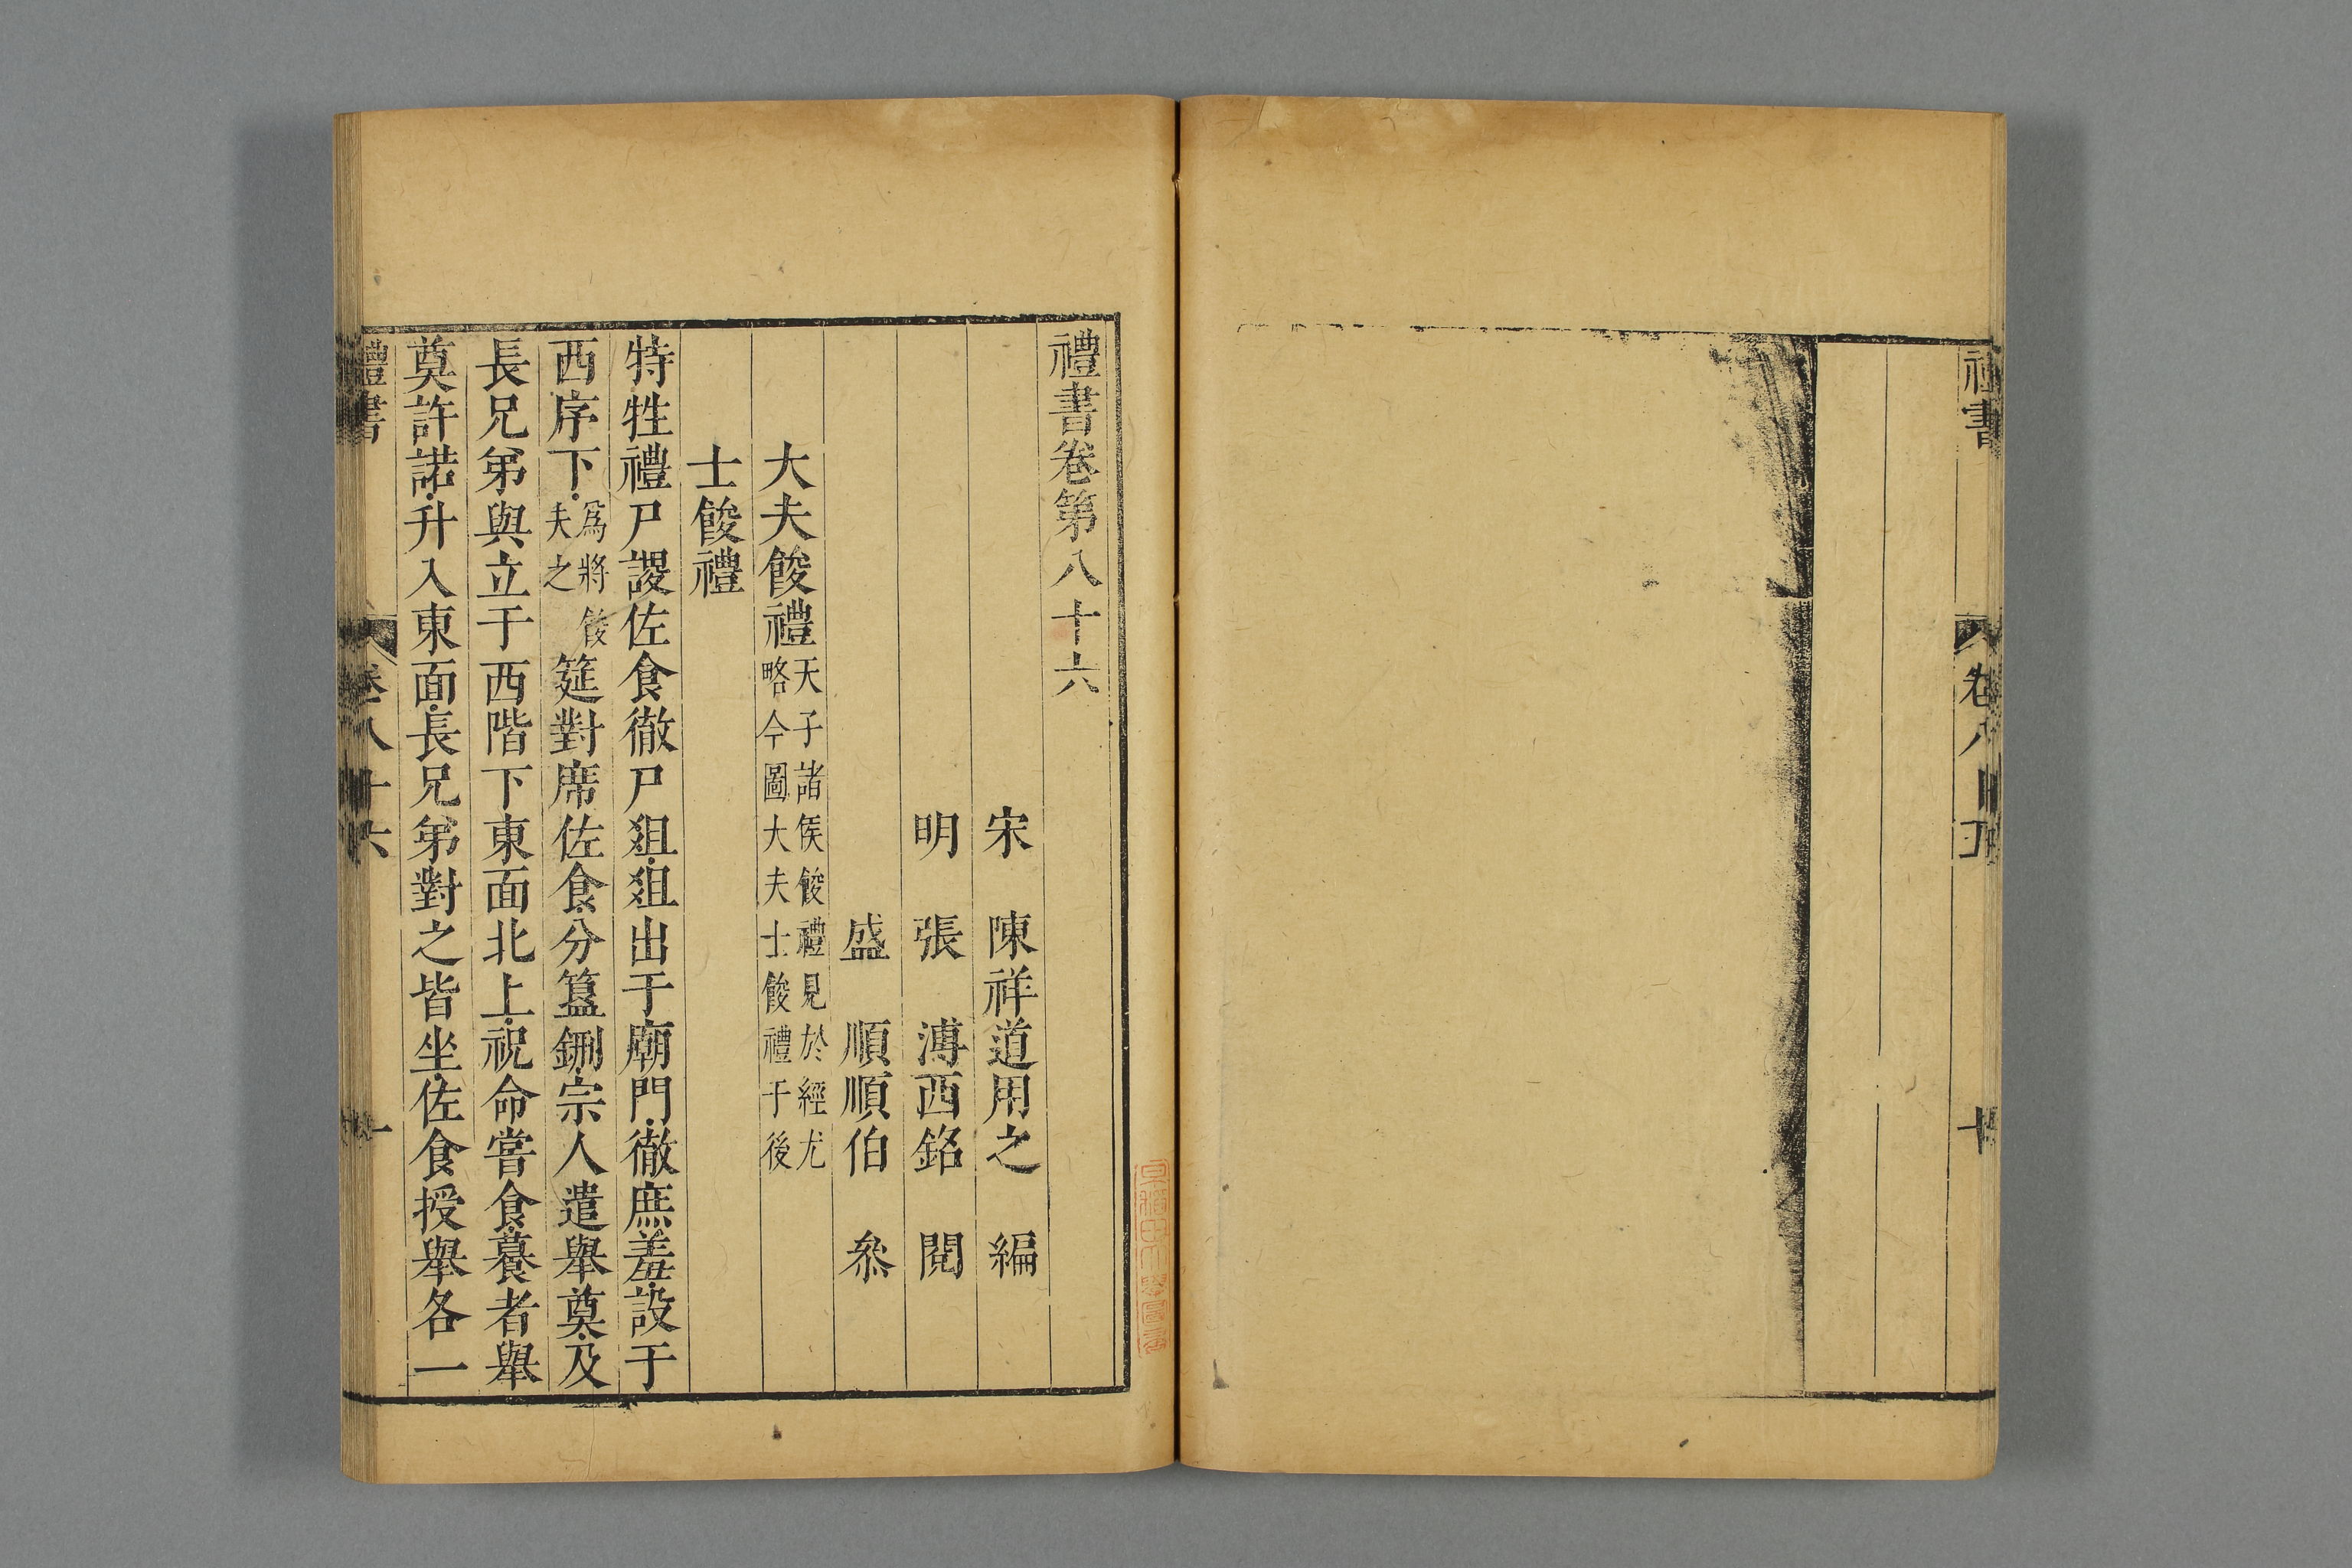 禮書
卷八十五
十
禮書卷第八十六
宋　陳祥道用之　編
明　張　溥西銘　閱
盛　順順伯　叅
大夫餕禮天子諸侯餕禮見於經尤
略今圖大夫士餕禮于後
士餕禮
特牲禮尸謖佐食徹尸俎俎出于廟門徹庶羞設于
西序下爲將餕
夫之筵對席佐食分簋鉶宗人遣舉奠及
長兄弟與立于西階下東面北上祝命嘗食養者舉
奠許諾升入東面長兄弟對之皆坐佐食授舉各一
禮書
卷八十六
一
早稲田大學圖書